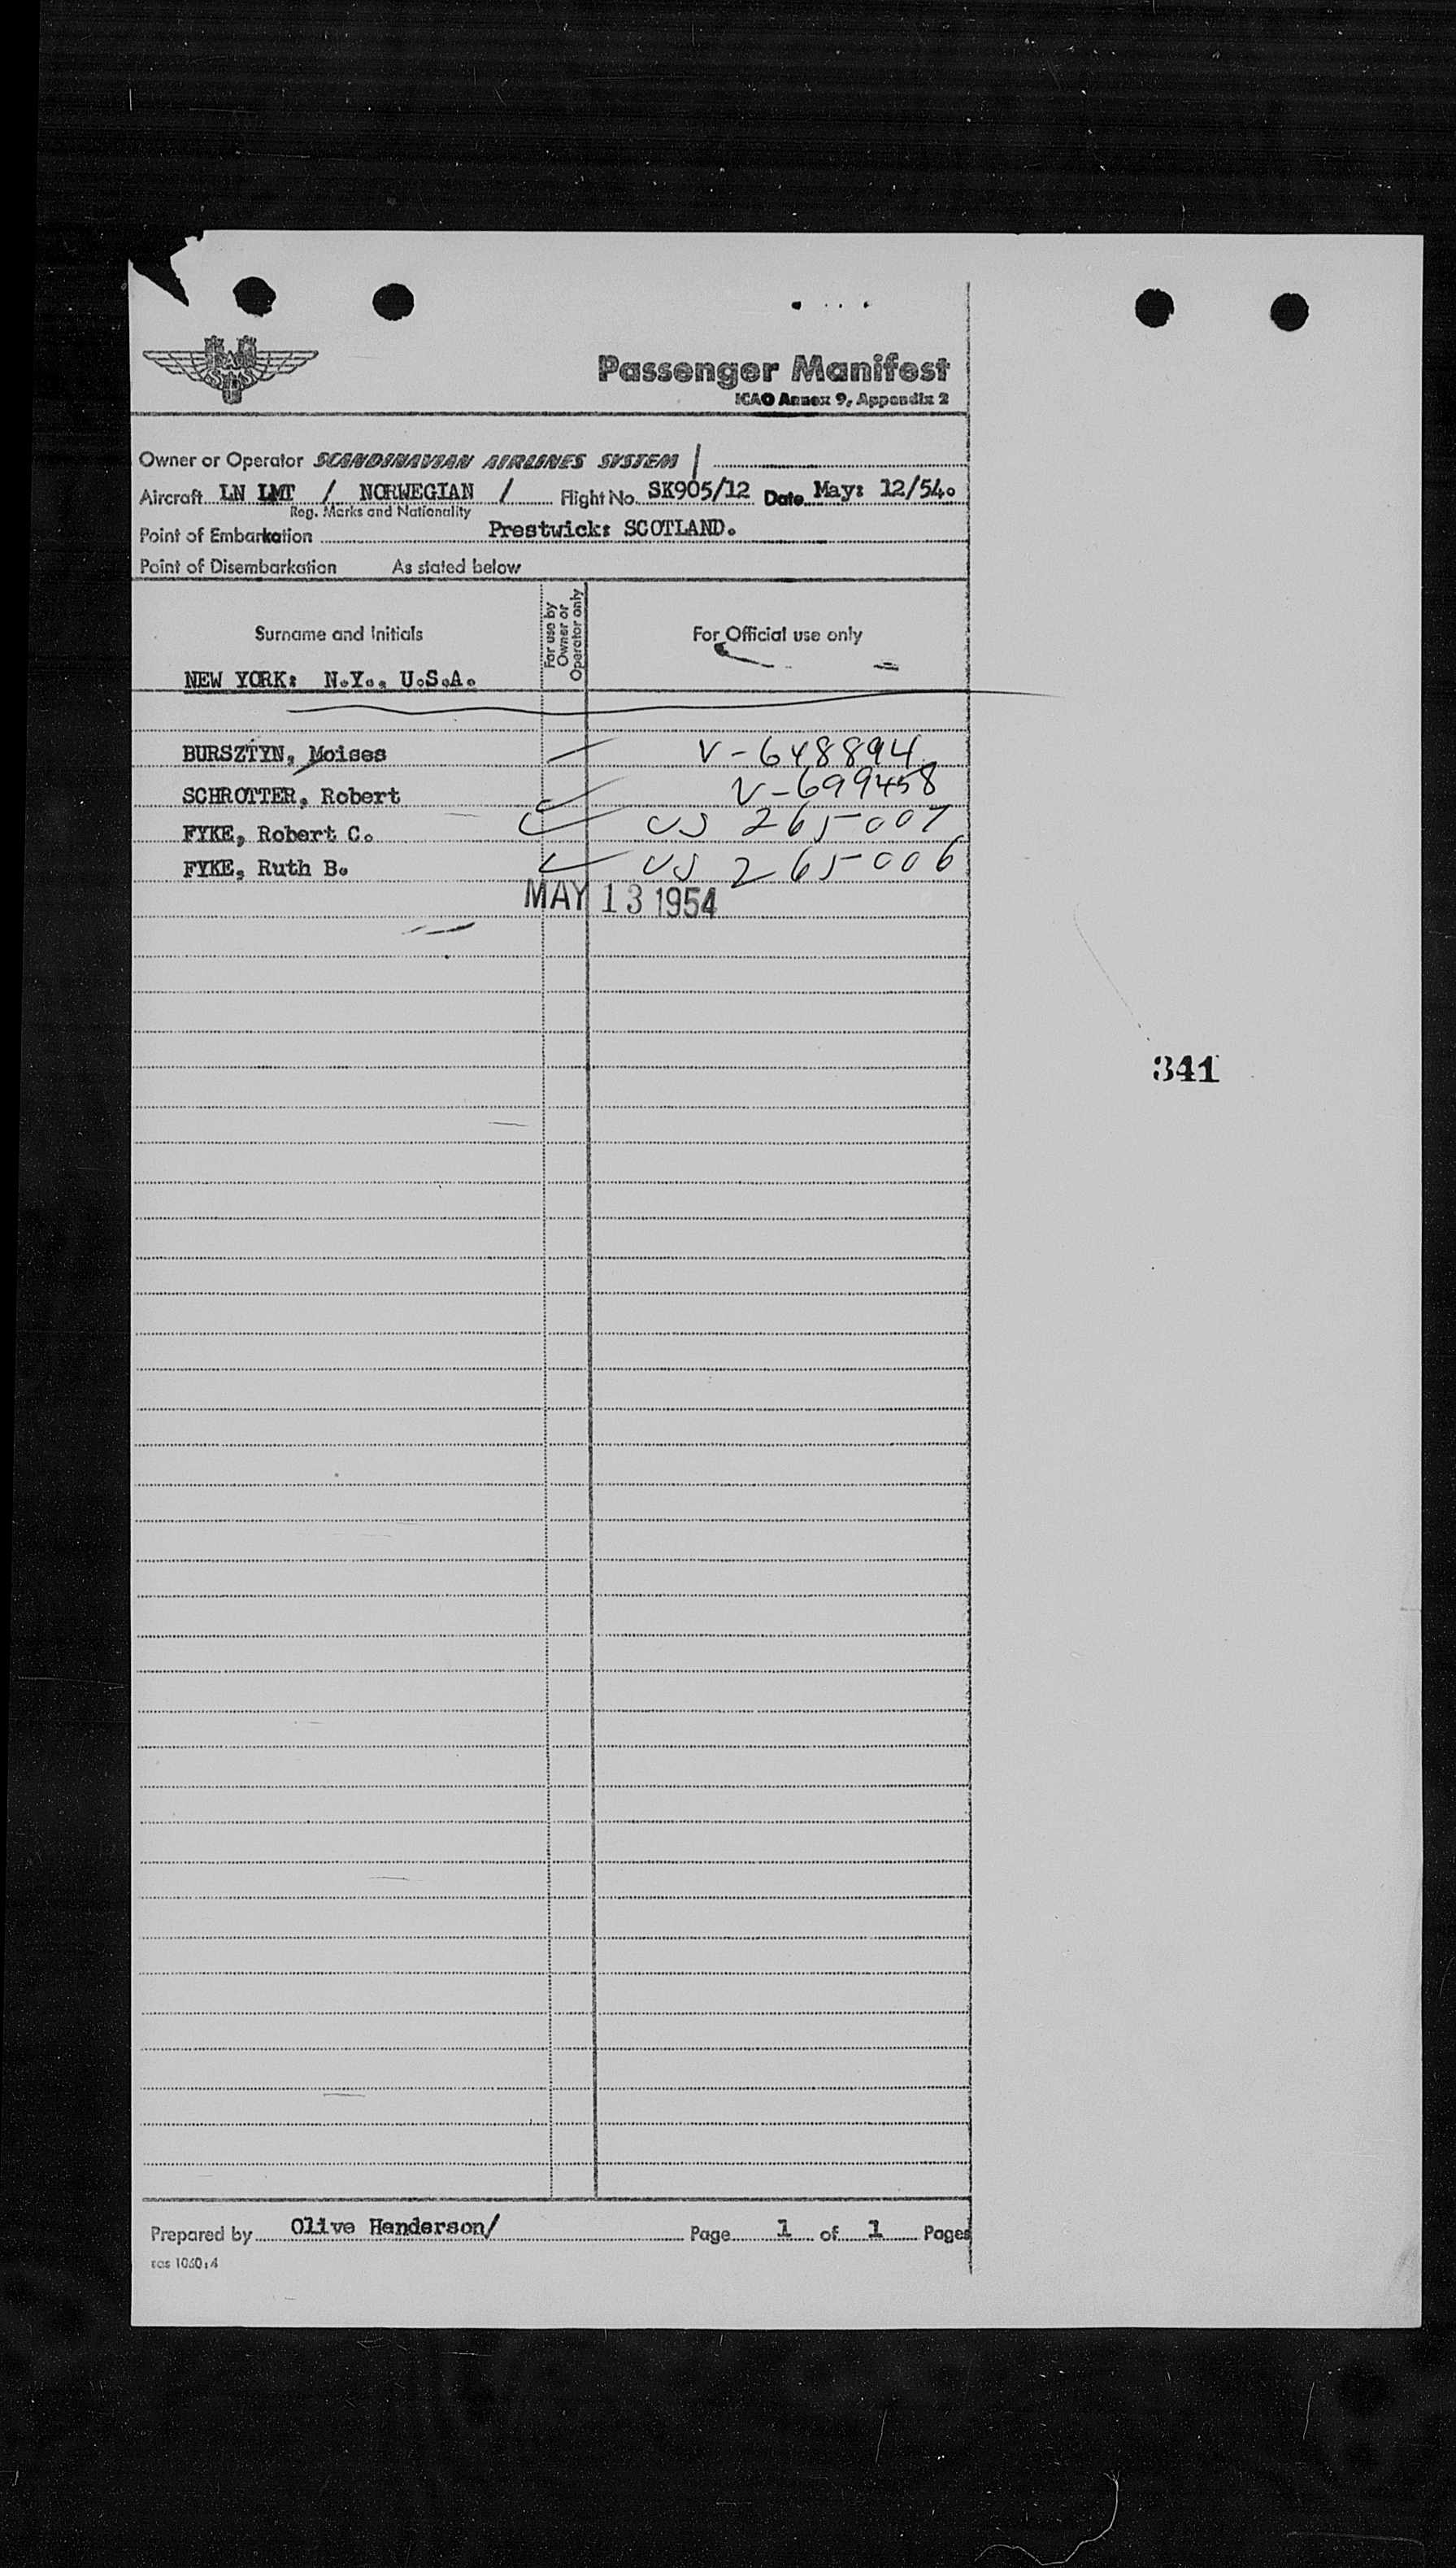 SAS
Passenger Manifest
ICAO Annex 9, Appendix 2
Owner or Operator SCANDINAVIAN AIRLINES SYSTEM /
Aircraft LN LMT / NORWEGIAN / Flight No. SK905/12 Date May: 12/54.
Reg. Marks and Nationality
Point of Embarkation Prestwick: SCOTLAND.
Point of Disembarkation As stated below
Surname and Initials
For use by
Owner or
Operator only
For Official use only
NEW YORK: N.Y., U.S.A.
BURSZTYN, Moises V-648894
SCHROTTER, Robert V-699458
FYKE, Robert C. US 265007
FYKE, Ruth B. US 265006
MAY 13 1954
341
Prepared by Olive Henderson/ Page 1 of 1 Pages
sas 1060:4